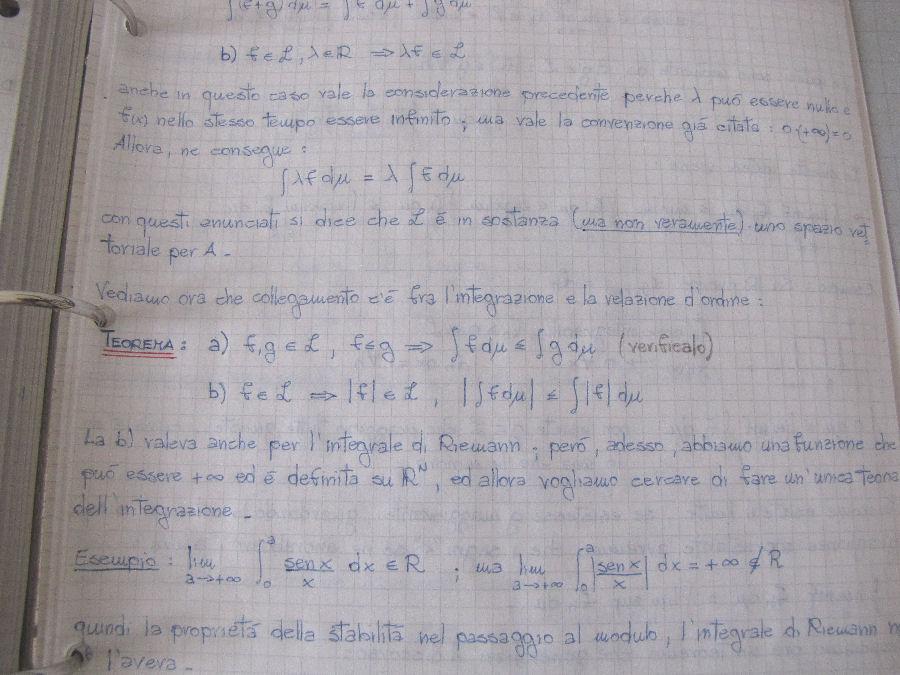 ∫(f+g)dμ = ∫f dμ + ∫g dμ
b) f ∈ ℒ, λ∈R ⇒ λf ∈ ℒ
anche in questo caso vale la considerazione precedente perche λ puó essere nullo e
f(x) nello stesso tempo essere infinito ; ma vale la convenzione giá citata : 0·(+∞)=0
Allora, ne consegue :
∫λf dμ = λ∫f dμ
con questi enunciati si dice che ℒ é in sostanza (ma non veramente) uno spazio vet
toriale per A -
Vediamo ora che collegamento c'é fra l'integrazione e la relazione d'ordine :
TEOREMA : a) f,g ∈ ℒ , f≤g ⇒ ∫f dμ ≤ ∫g dμ (verificalo)
b) f∈ℒ ⇒ |f| ∈ ℒ , |∫f dμ| ≤ ∫|f| dμ
La b) valeva anche per l'integrale di Riemann ; peró, adesso, abbiamo una funzione che
puó essere +∞ ed é definita su ℝᴺ, ed allora vogliamo cercare di fare un'unica teoria
dell'integrazione -
Esempio : lim a→+∞ ∫₀ᵃ sen x / x dx ∈ R ; ma lim a→+∞ ∫₀ᵃ |sen x / x| dx = +∞ ∉ R
quindi la proprietá della stabilitá nel passaggio al modulo, l'integrale di Riemann
l'aveva -